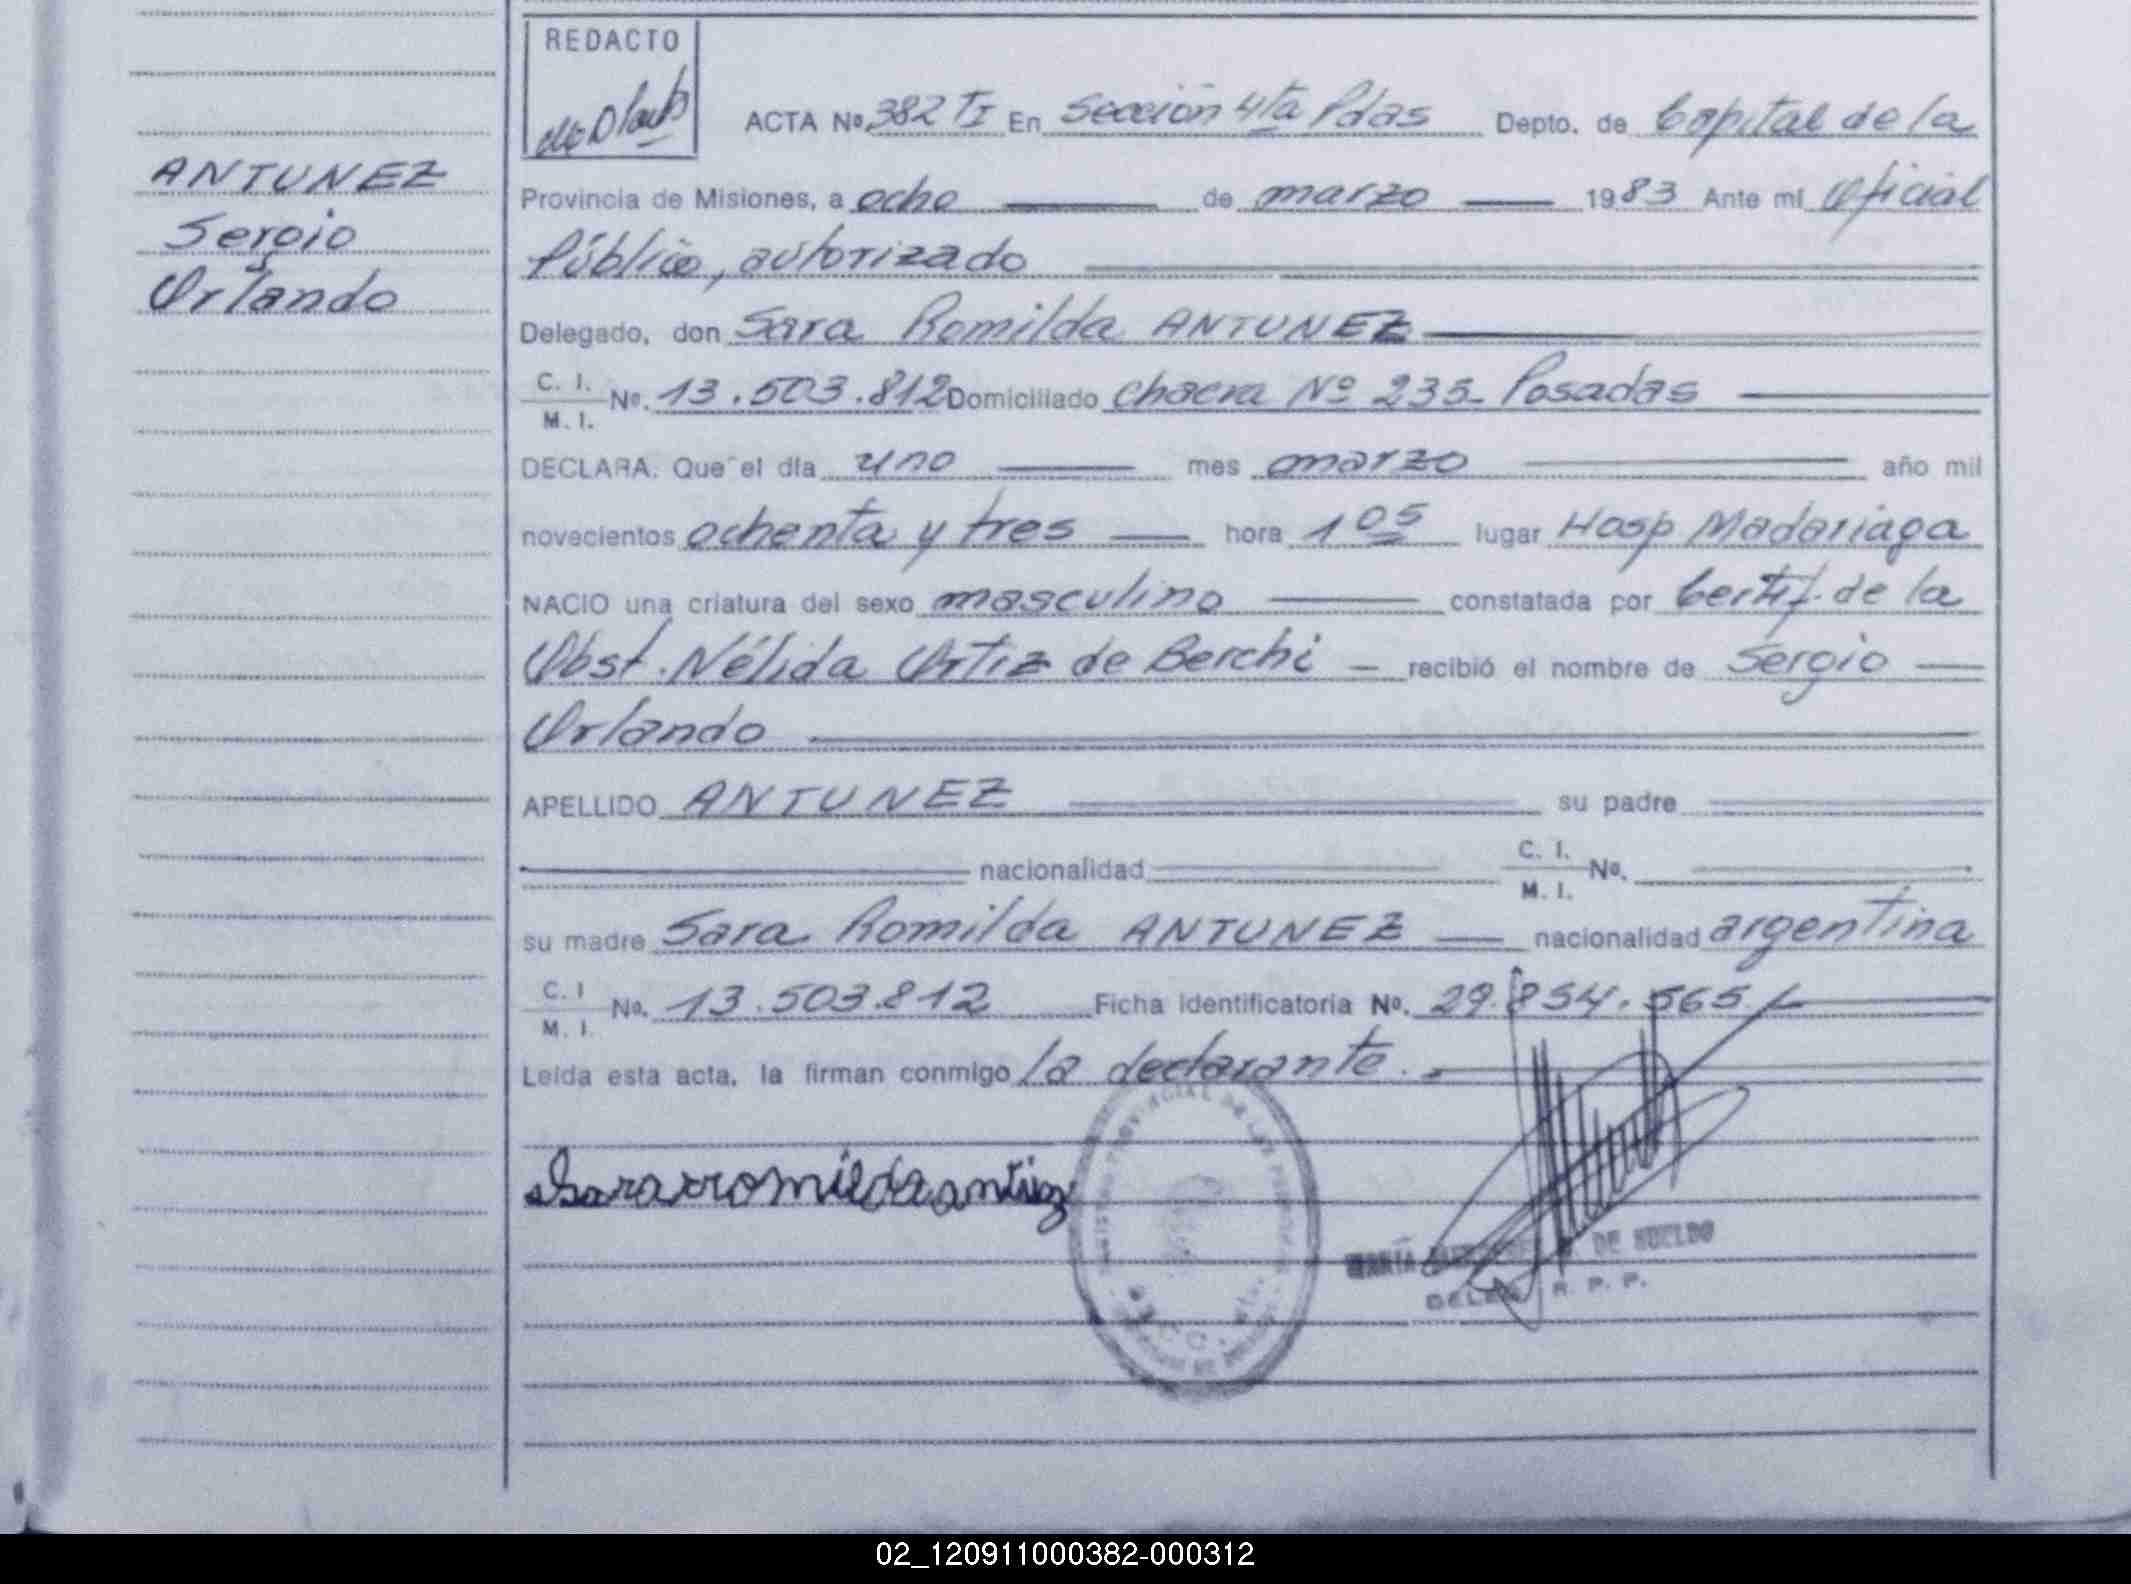 REDACTO
ACTA Nº 382 TI En Sección 4ta Pdas Depto. de Capital de la
ANTUNEZ
Sergio
Orlando
Provincia de Misiones, a ocho de marzo 1983 Ante mi Oficial
Público, autorizado
Delegado, don Sara Romilda ANTUNEZ
C. I.
M. I.
Nº. 13.503.812 Domiciliado Chacra Nº 235- Posadas
DECLARA: Que el día uno mes marzo año mil
novecientos ochenta y tres hora 1 05 lugar Hosp Madariaga
NACIO una criatura del sexo masculino constatada por Certif. de la
Obst. Nélida Ortiz de Berchi recibió el nombre de Sergio
Orlando
APELLIDO ANTUNEZ su padre
nacionalidad C. I.
M. I.
Nº.
su madre Sara Romilda ANTUNEZ nacionalidad argentina
C. I
M. I.
Nº. 13.503.812 Ficha Identificatoria Nº. 29.854.565.
Leída esta acta, la firman conmigo la declarante.
Sara rromilda antunez
MARÍA DE SUELDO
R. P. P.
02_120911000382-000312